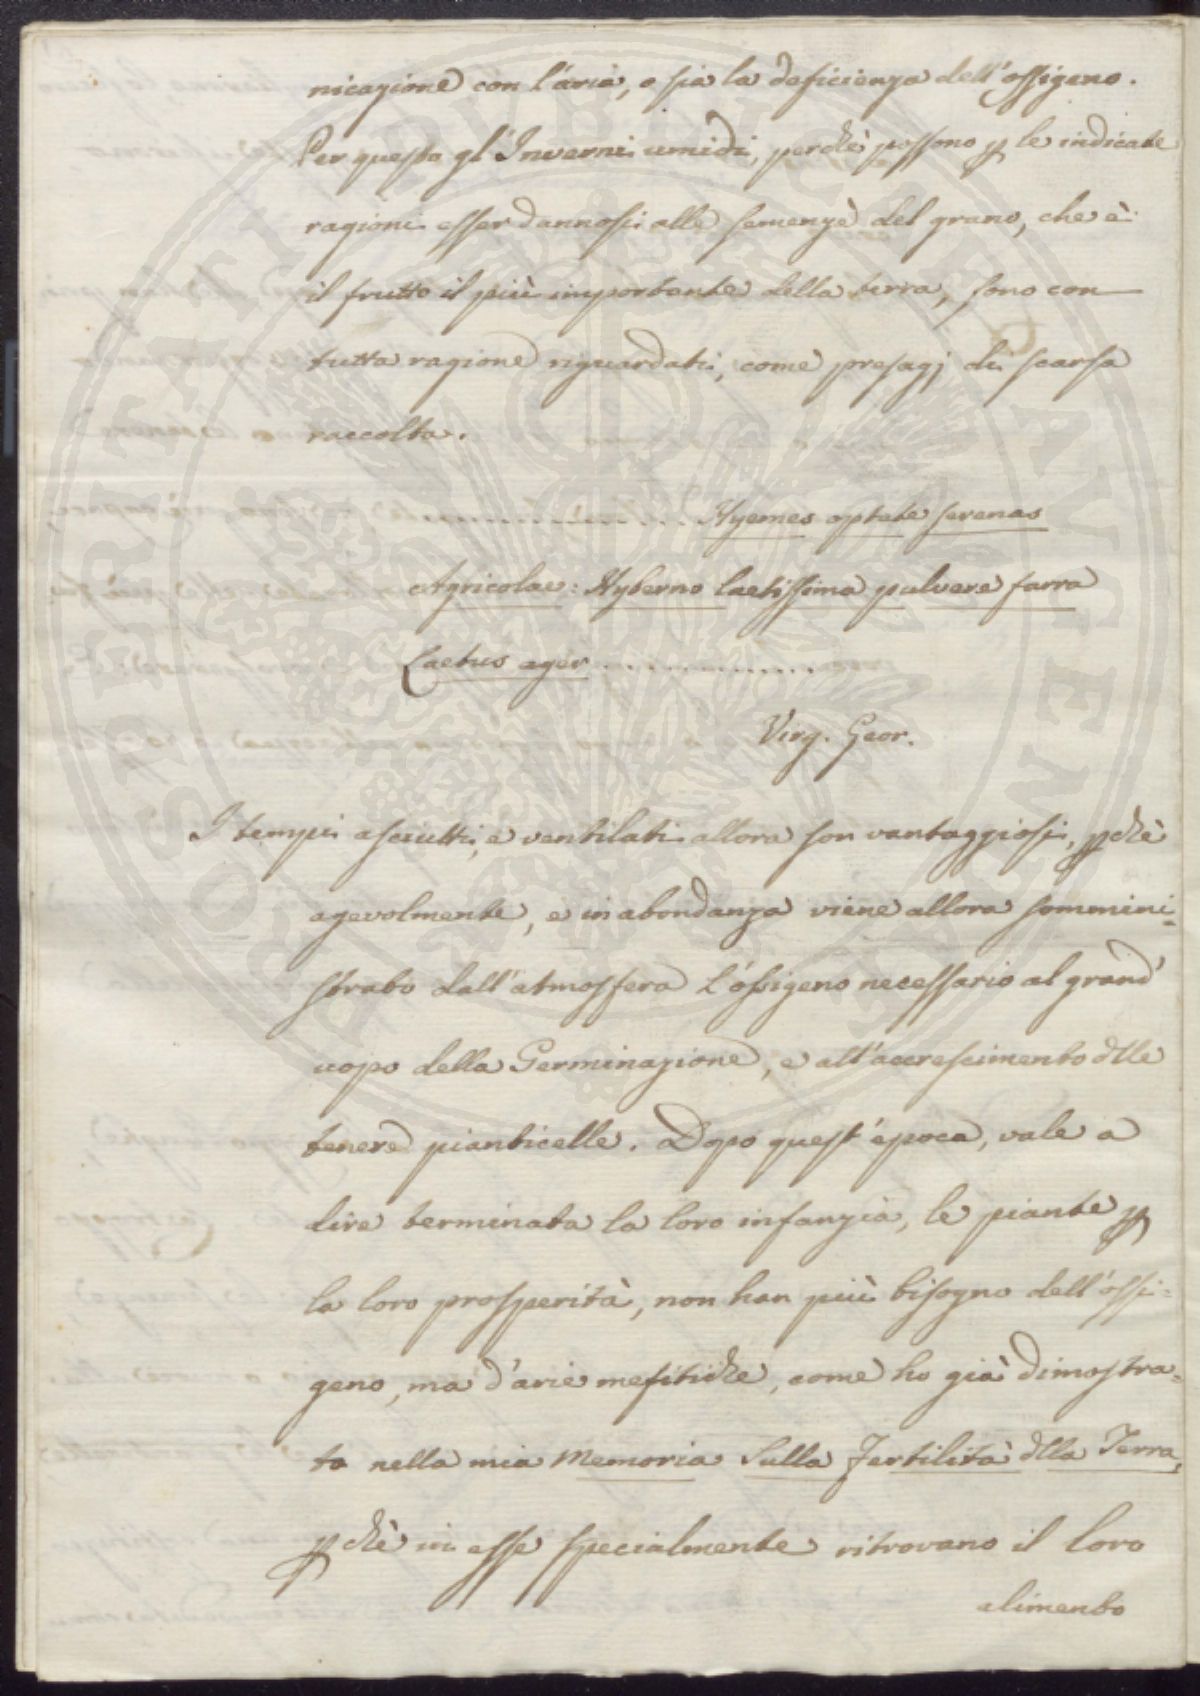 nicazione con l'aria, o sia la deficienza dell'ossigeno.
Per questo gl'Inverni umidi, perchè possono p le indicate
ragioni esser dannosi alle semenze del grano, che è
il frutto il più importante della terra, sono con
tutta ragione riguardati, come presagj di scarsa
raccolta.
.................. Hyemes optate serenas
Agricolae: Hyberno laetissima pulvere farra
Laetus ager ..................
Virg. Geor.
I tempi asciutti, e ventilati allora son vantaggiosi, pchè
agevolmente, e in abondanza viene allora sommini=
strato dall'atmosfera l'ossigeno necessario al grand'
uopo della Germinazione, e all'accrescimento dlle
tenere pianticelle. Dopo quest'epoca, vale a
dire terminata la loro infanzia, le piante p
la loro prosperità, non han più bisogno dell'ossi=
geno, ma d'arie mefitiche, come ho già dimostra=
to nella mia Memoria Sulla Fertilità dlla Terra,
pchè in esse specialmente ritrovano il loro
alimento
PROSPERITATI PUBLICAE AVGENDAE